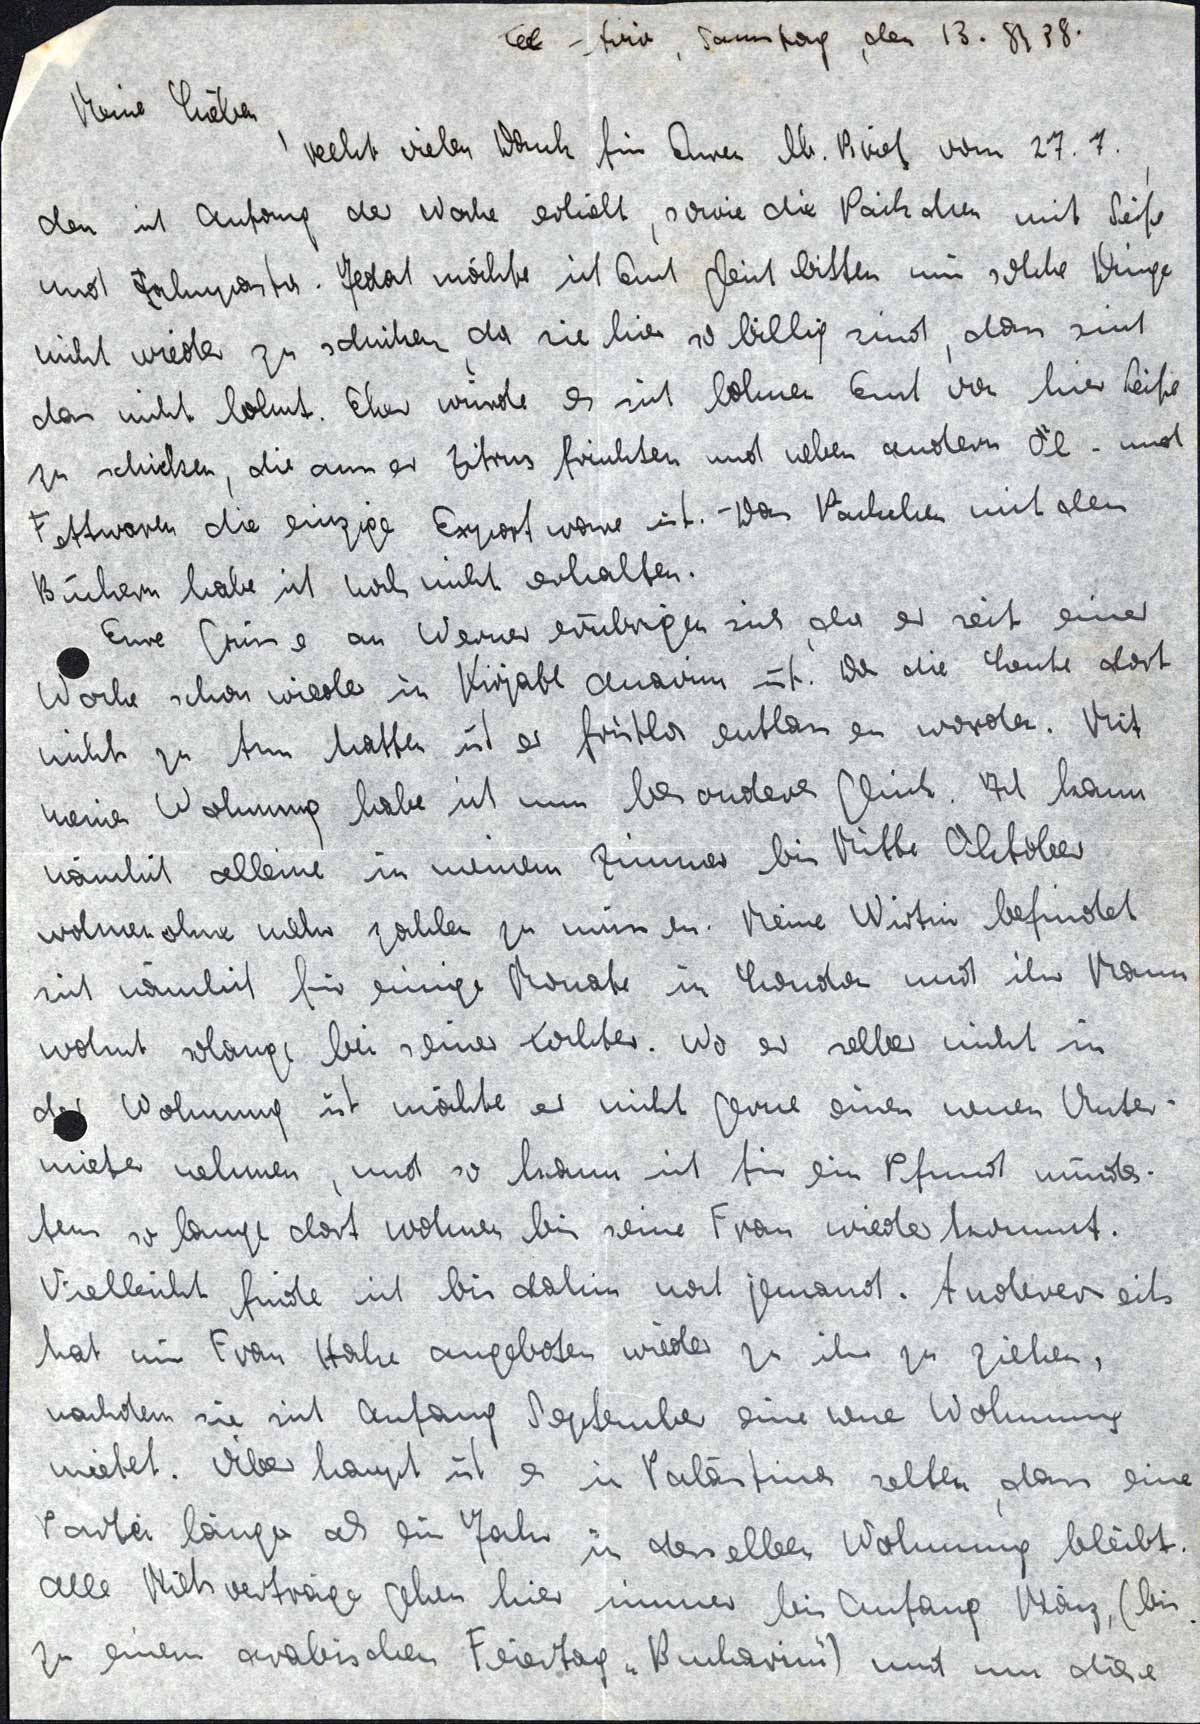 Tel-Aviv, Samstag, den 13. 8. 38.
Meine Lieben,
recht vielen Dank für Euren lb. Brief vom 27. 7.,
den ich Anfang der Woche erhielt, sowie die Päckchen mit Seife
und Zahnpasta. Jedoch möchte ich Euch gleich bitten mir solche Dinge
nicht wieder zu schicken, da sie hier so billig sind, dass sich
das nicht lohnt. Eher würde es sich lohnen Euch von hier Seife
zu schicken, die ausser Zitrusfrüchten und neben andern Öl- und
Fettwaren die einzige Exportware ist. - Das Päckchen mit den
Büchern habe ich noch nicht erhalten.
Eure Grüsse an Werner erübrigen sich, da er seit einer
Woche schon wieder in Kirjath Anavim ist. Da die Leute dort
nichts zu tun hatten ist er fristlos entlassen worden. Mit
meiner Wohnung habe ich nun besonderes Glück. Ich kann
nämlich alleine in meinem Zimmer bis Mitte Oktober
wohnen ohne mehr zahlen zu müssen. Meine Wirtin befindet
sich nämlich für einige Monate in London und ihr Mann
wohnt solange bei seiner Tochter. Wo er selber nicht in
der Wohnung ist möchte er nicht gerne einen neuen Unter-
mieter nehmen, und so kann ich für ein Pfund mindes-
tens so lange dort wohnen bis seine Frau wiederkommt.
Vielleicht finde ich bis dahin noch jemand. Andererseits
hat mir Frau Hahe angeboten wieder zu ihr zu ziehen,
nachdem sie sich Anfang September eine neue Wohnung
mietet. Überhaupt ist es in Palästina selten, dass eine
Partei länger als ein Jahr in derselben Wohnung bleibt.
Alle Mietsverträge gehen hier immer bis Anfang März, (bis
zu einem arabischen Feiertag „Bucharim") und um diese